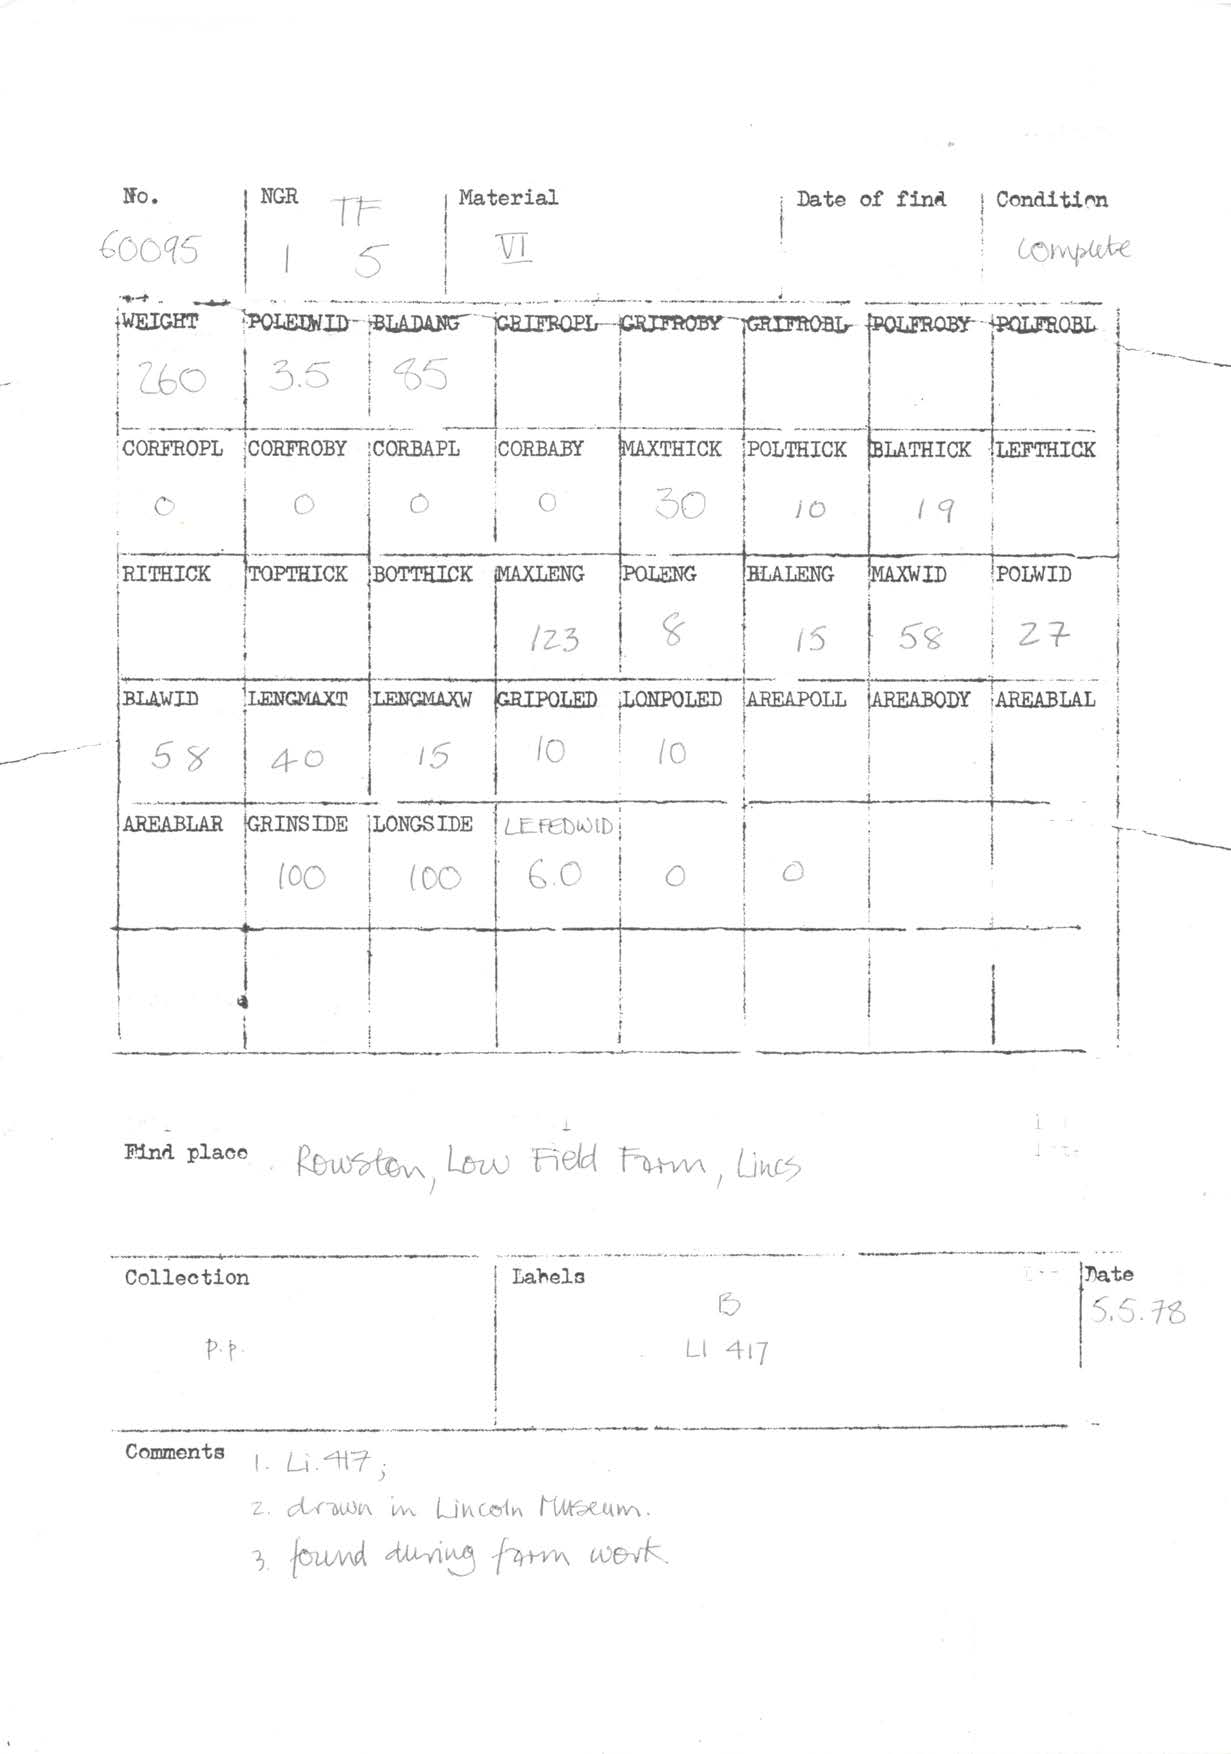 No. NGR TF Material Date of find Condition
60095 1 5 VI complete
WEIGHT POLEDWID BLADANG GRIFROPL GRIFROBY GRIFROBL POLFROBY POLFROBL
260 3.5 85
CORFROPL CORFROBY CORBAPL CORBABY MAXTHICK POLTHICK BLATHICK LEFTHICK
0 0 0 0 30 10 19
RITHICK TOPTHICK BOTTHICK MAXLENG POLENG BLALENG MAXWID POLWID
123 8 15 58 27
BLAWID LENGMAXT LENGMAXW GRIPOLED LONPOLED AREAPOLL AREABODY AREABLAL
58 40 15 10 10
AREABLAR GRINSIDE LONGSIDE LEFEDWID
100 100 6.0 0 0
Find place Rowston, Low Field Farm, Lincs
Collection Labels Date
B 5.5.78
P.P. LI 417
Comments 1. Li.417;
2. drawn in Lincoln Museum.
3. found during farm work.